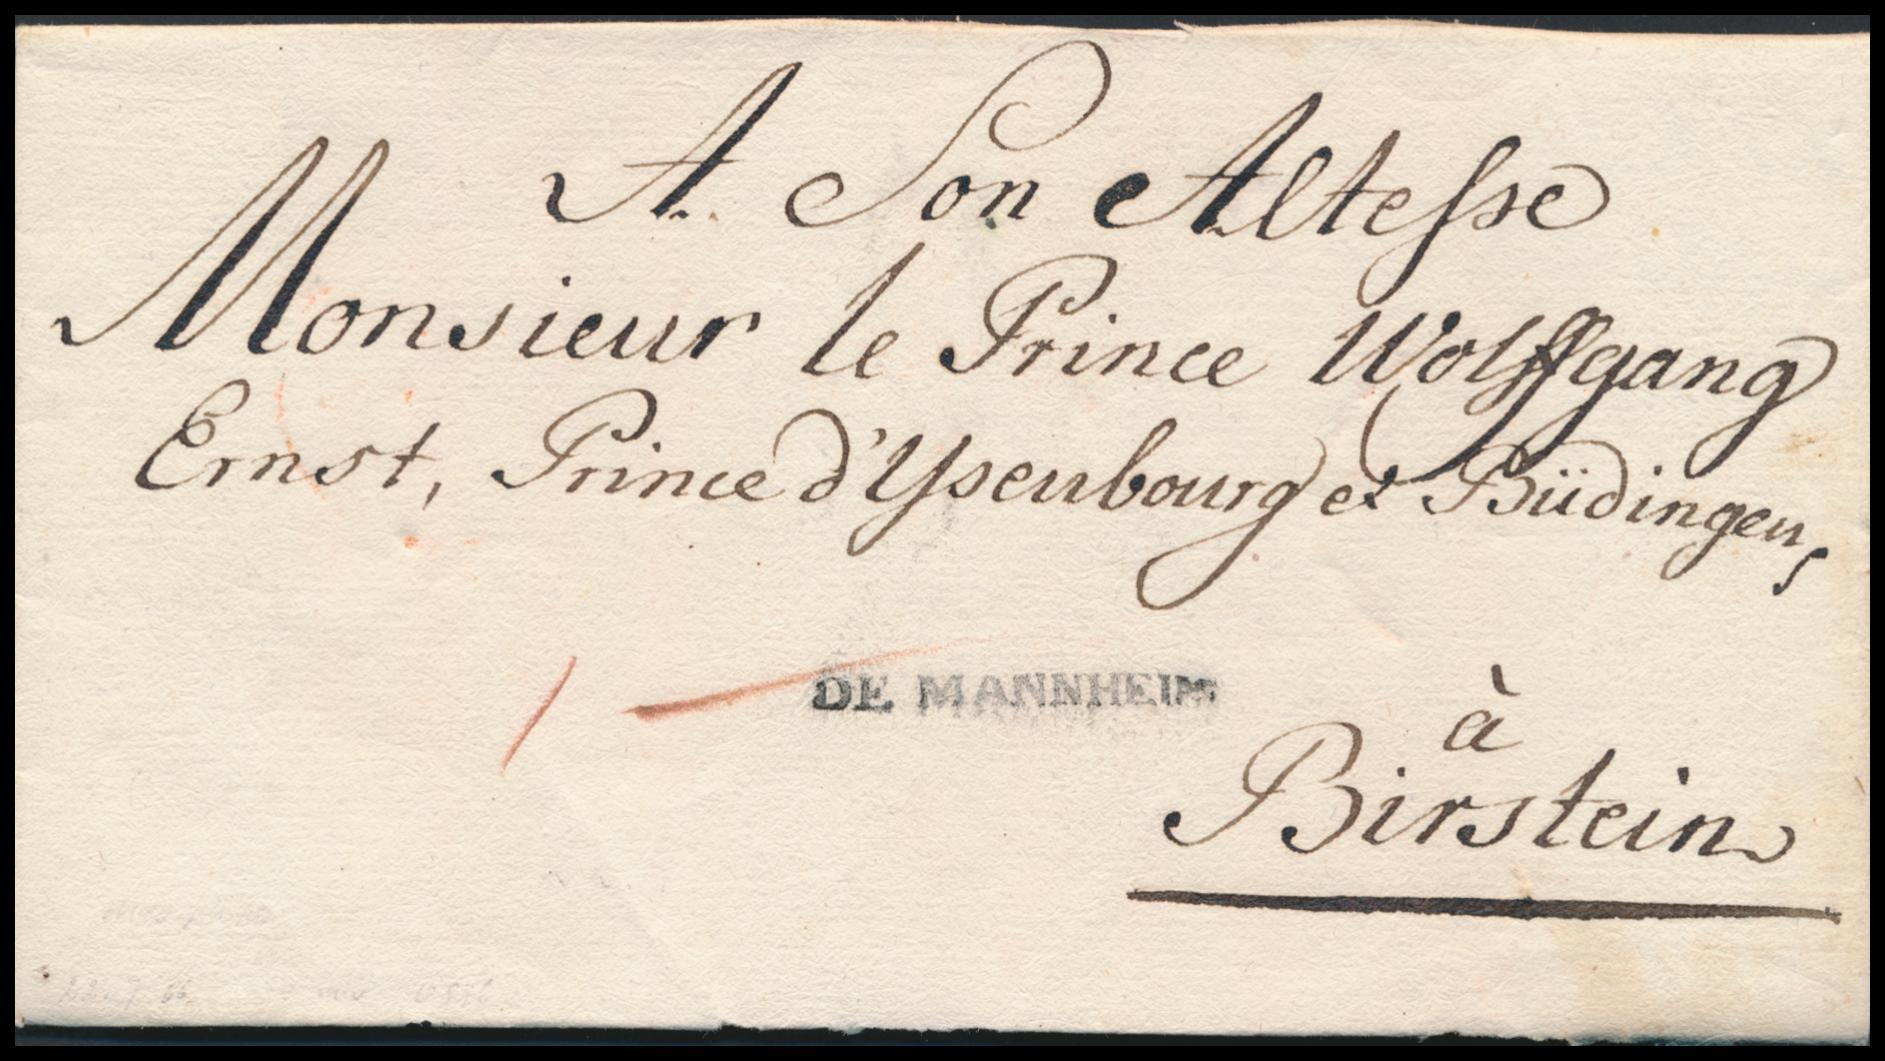 A Son Altesse
Monsieur le Prince Wolffgang
Ernst, Prince d'Ysenbourg et Büdingen,
DE MANNHEIM
à
Birstein